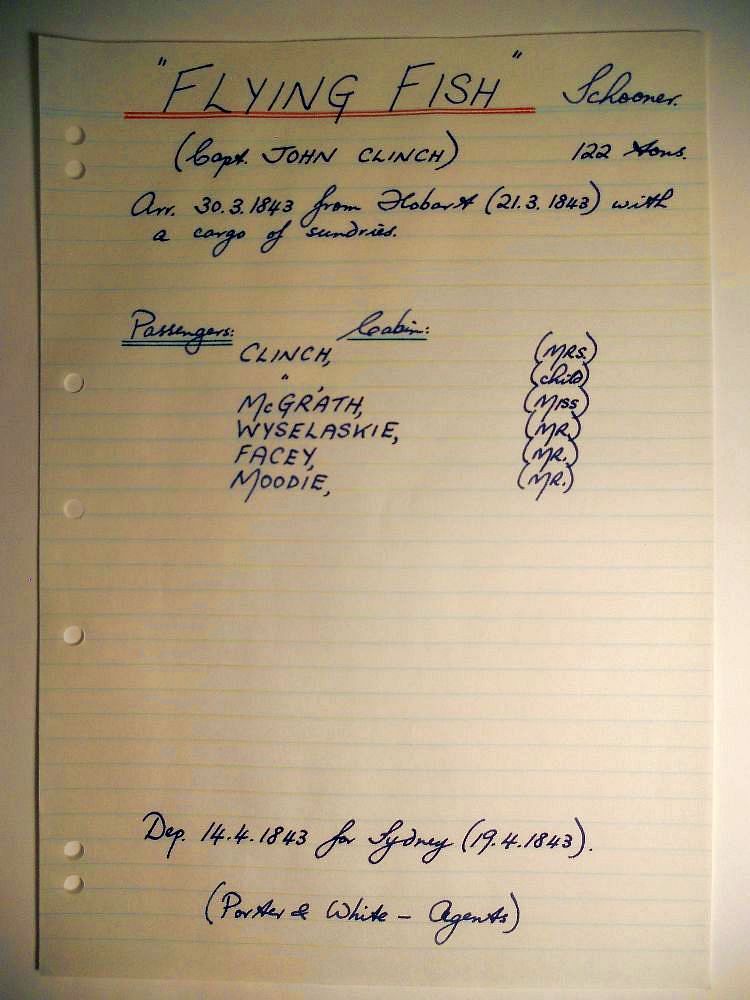 "FLYING FISH" Schooner.
(Capt. JOHN CLINCH) 122 tons.
Arr. 30.3.1843 from Hobart (21.3.1843) with
a cargo of sundries.
Passengers: Cabin:
CLINCH, (MRS.)
" , (child)
McGRATH, (MISS)
WYSELASKIE, (MR.)
FACEY, (MR.)
MOODIE, (MR.)
Dep. 14.4.1843 for Sydney (19.4.1843).
(Porter & White - Agents)